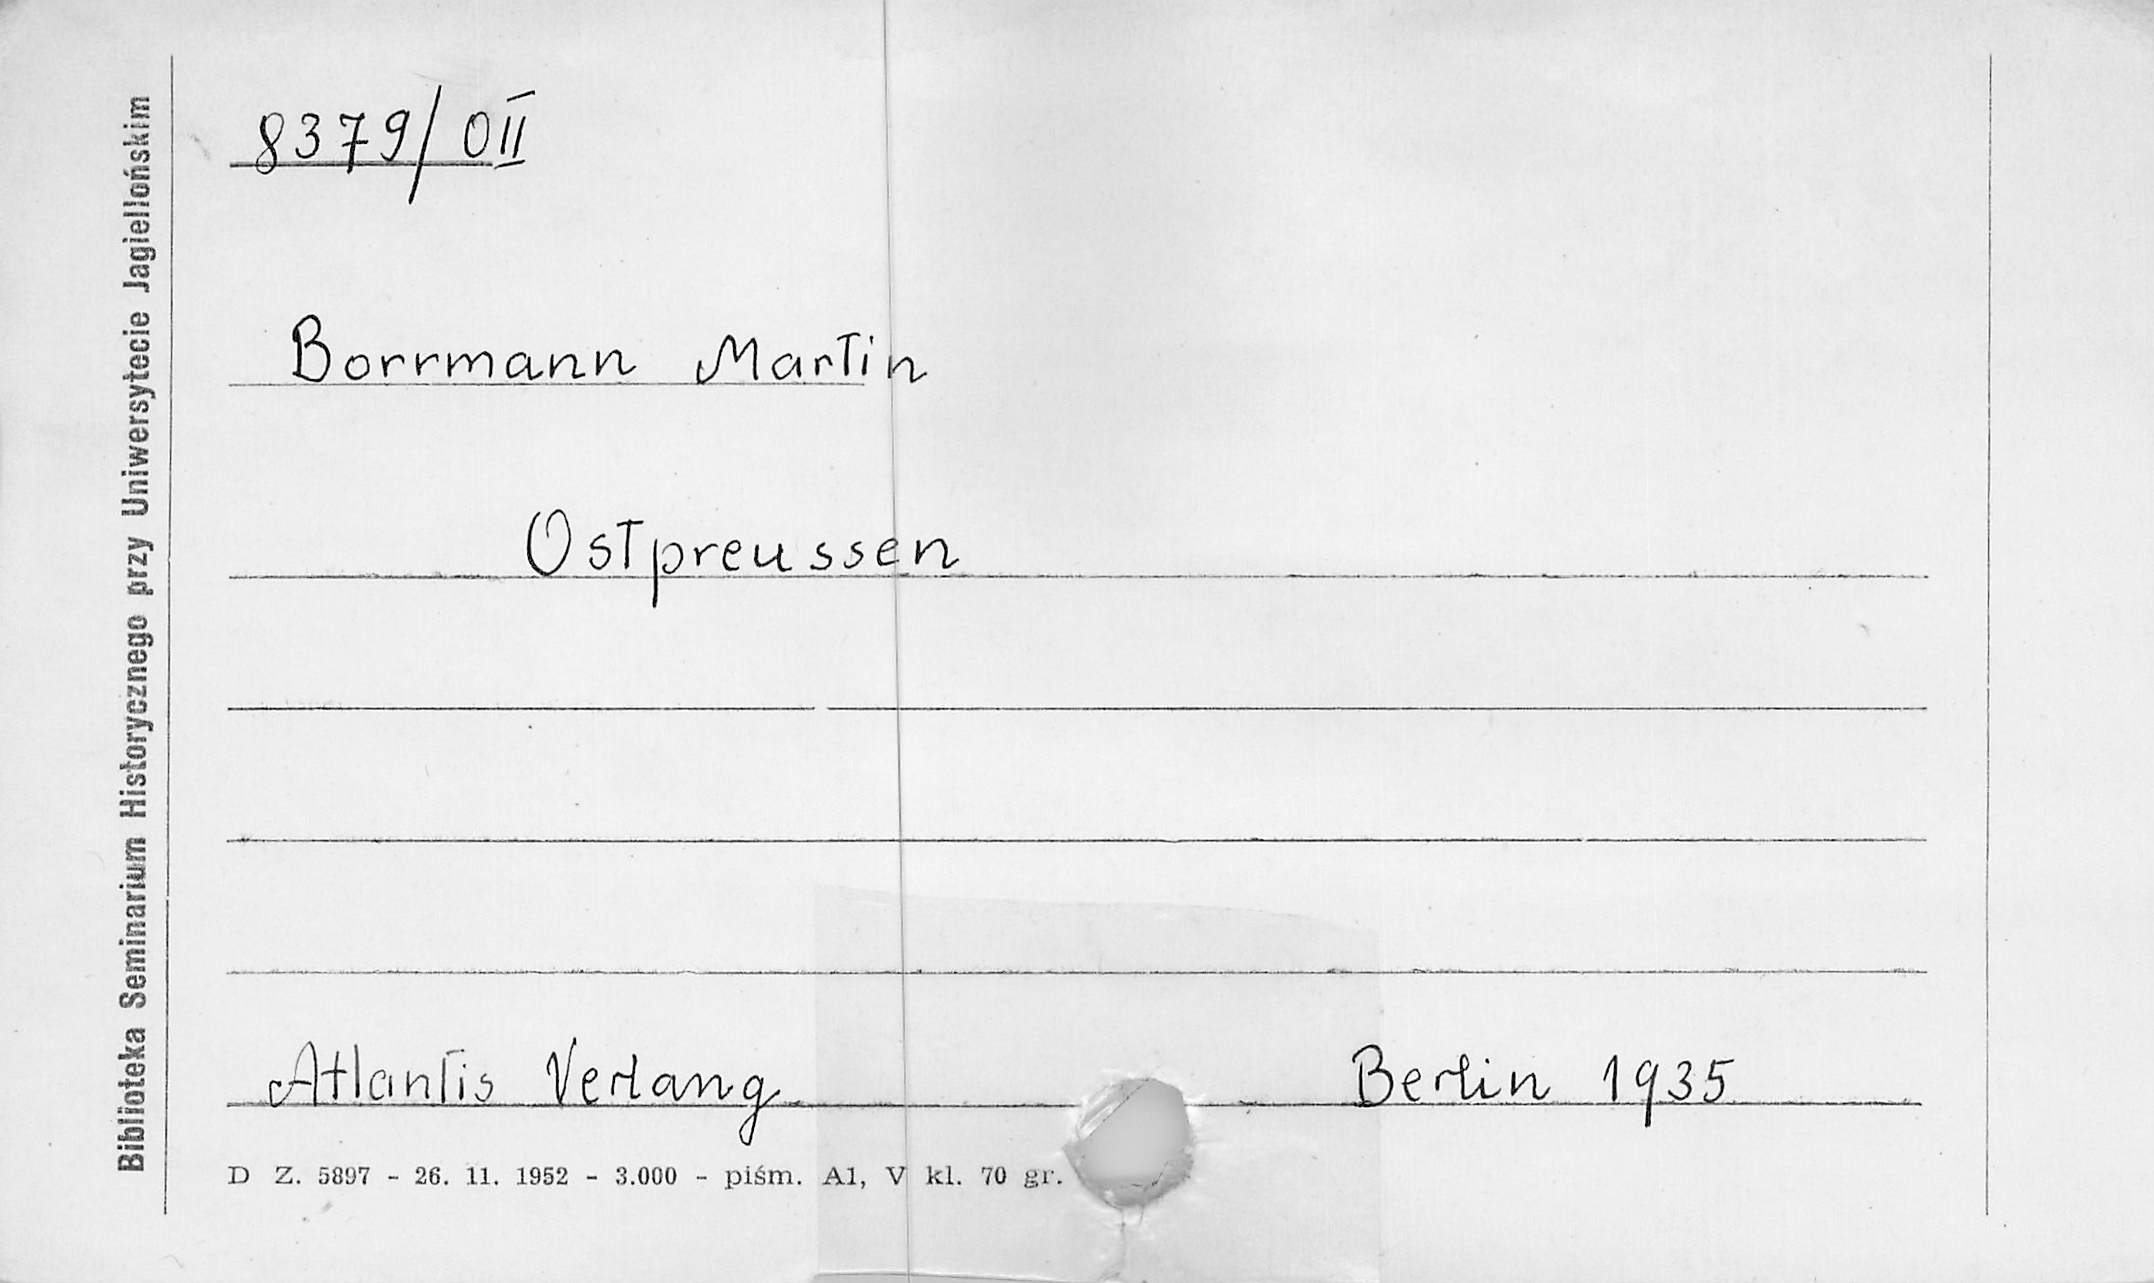 Biblioteka Seminarium Historycznego przy Uniwersytecie Jagiellońskim
8379/OII
Borrmann Martin
Ostpreussen
Atlantis Verlang Berlin 1935
D Z. 5897 - 26. 11. 1952 - 3.000 - piśm. A1, V kl. 70 gr.